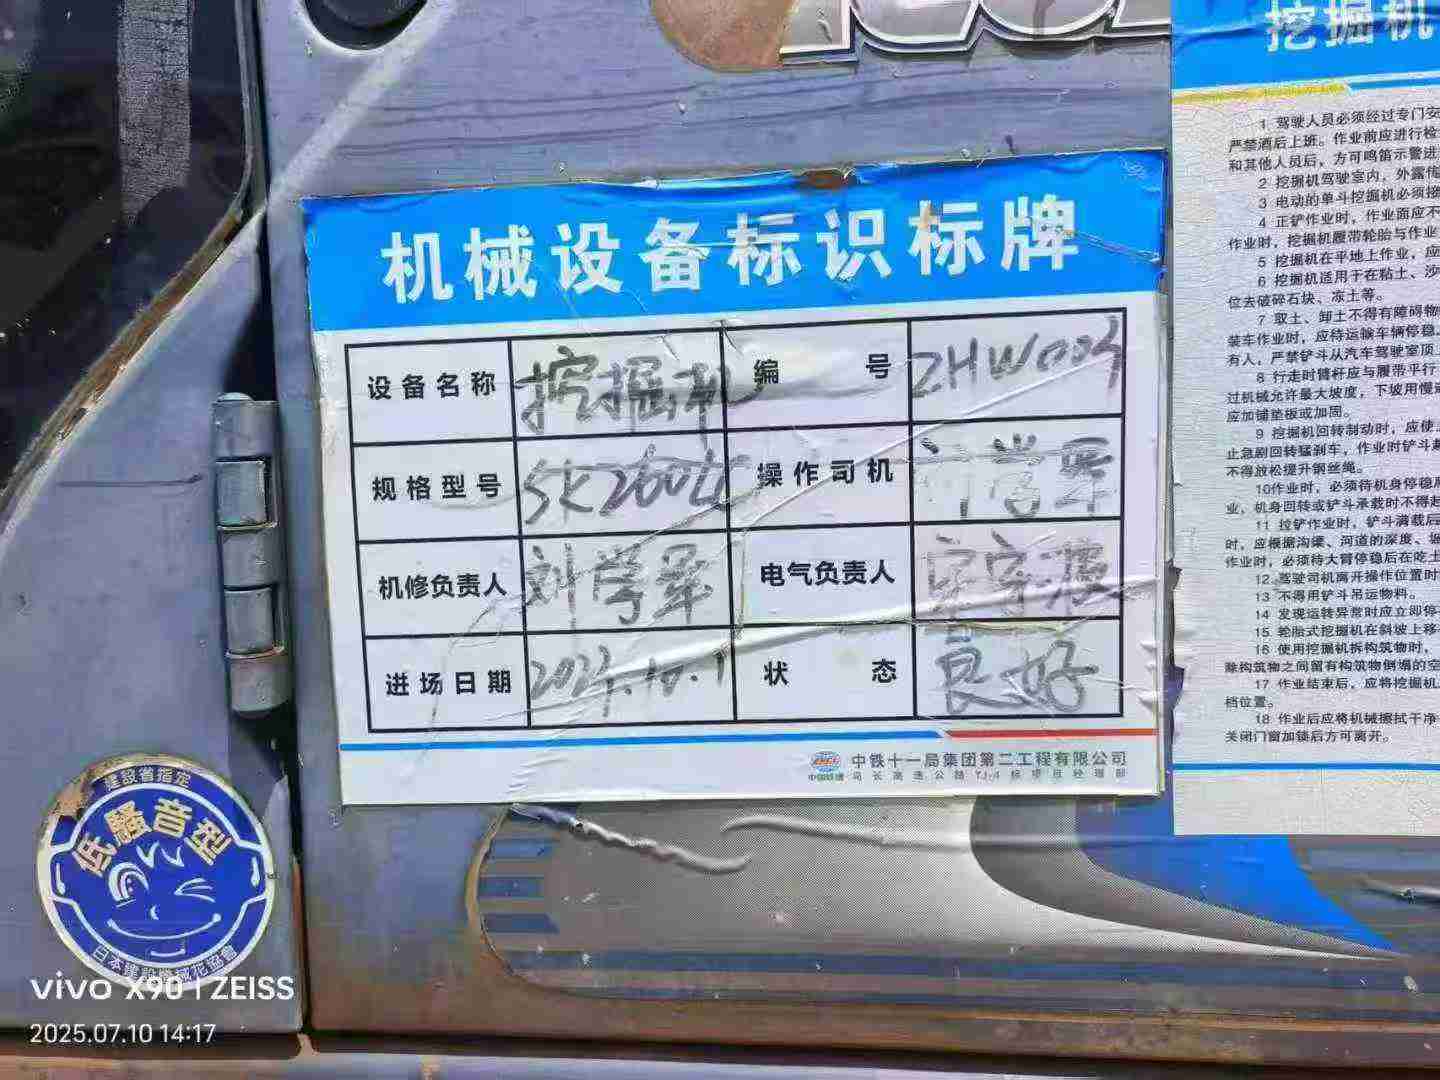 挖掘机
机械设备标识标牌
设备名称 挖掘机 编号 ZHW004
规格型号 SK260LC 操作司机
机修负责人 刘学军 电气负责人
进场日期 2024.10.1 状态 良好
中铁十一局集团第二工程有限公司
1 驾驶人员必须经过专门安
严禁酒后上班。作业前应进行检
和其他人员后，方可鸣笛示警进
2 挖掘机驾驶室内，外露传
3 电动的单斗挖掘机必须接
4 正铲作业时，作业面应不
作业时，挖掘机履带轮胎与作业
5 挖掘机在平地上作业，应
6 挖掘机适用于在粘土、沙
位去破碎石块、冻土等。
7 取土、卸土不得有障碍物
装车作业时，应待运输车辆停稳
有人，严禁铲斗从汽车驾驶室顶
8 行走时臂杆应与履带平行
过机械允许最大坡度，下坡用慢
应加铺垫板或加固。
9 挖掘机回转制动时，应使
止急剧回转猛刹车，作业时铲斗
不得放松提升钢丝绳。
10作业时，必须待机身停稳
业，机身回转或铲斗承载时不得起
11 拉铲作业时，铲斗满载后
时，应根据沟渠、河道的深度、
作业时，必须待大臂停稳后在吃土
12 驾驶司机离开操作位置时
13 不得用铲斗吊运物料。
14 发现运转异常时应立即停
15 轮胎式挖掘机在斜坡上移
16 使用挖掘机拆构筑物时，
除构筑物之间留有构筑物倒塌的空
17 作业结束后，应将挖掘机
档位置。
18 作业后应将机械擦拭干净
关闭门窗加锁后方可离开。
建設省指定
低騒音型
日本建設機械化協會
vivo X90 | ZEISS
2025.07.10 14:17